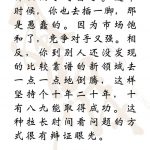 时候，你也去插一脚，那
是愚蠢的。因为市场饱
和了，竞争对手又强。相
反，你到别人还没发现
的比较靠谱的新领域去
一点一点地倒腾，这样
坚持个十年二十年，十
有八九能取得成功。这
种拉长时间看问题的方
式很有辩证眼光。